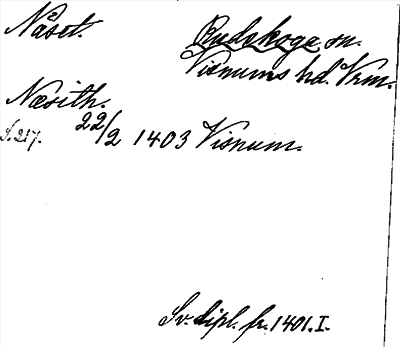 Näset.
Rudskoga sn.
Visnums hd. Vrm.
Næsith.
S. 217. 22/2 1403 Visnum.
Sv. dipl. fr. 1401. I.